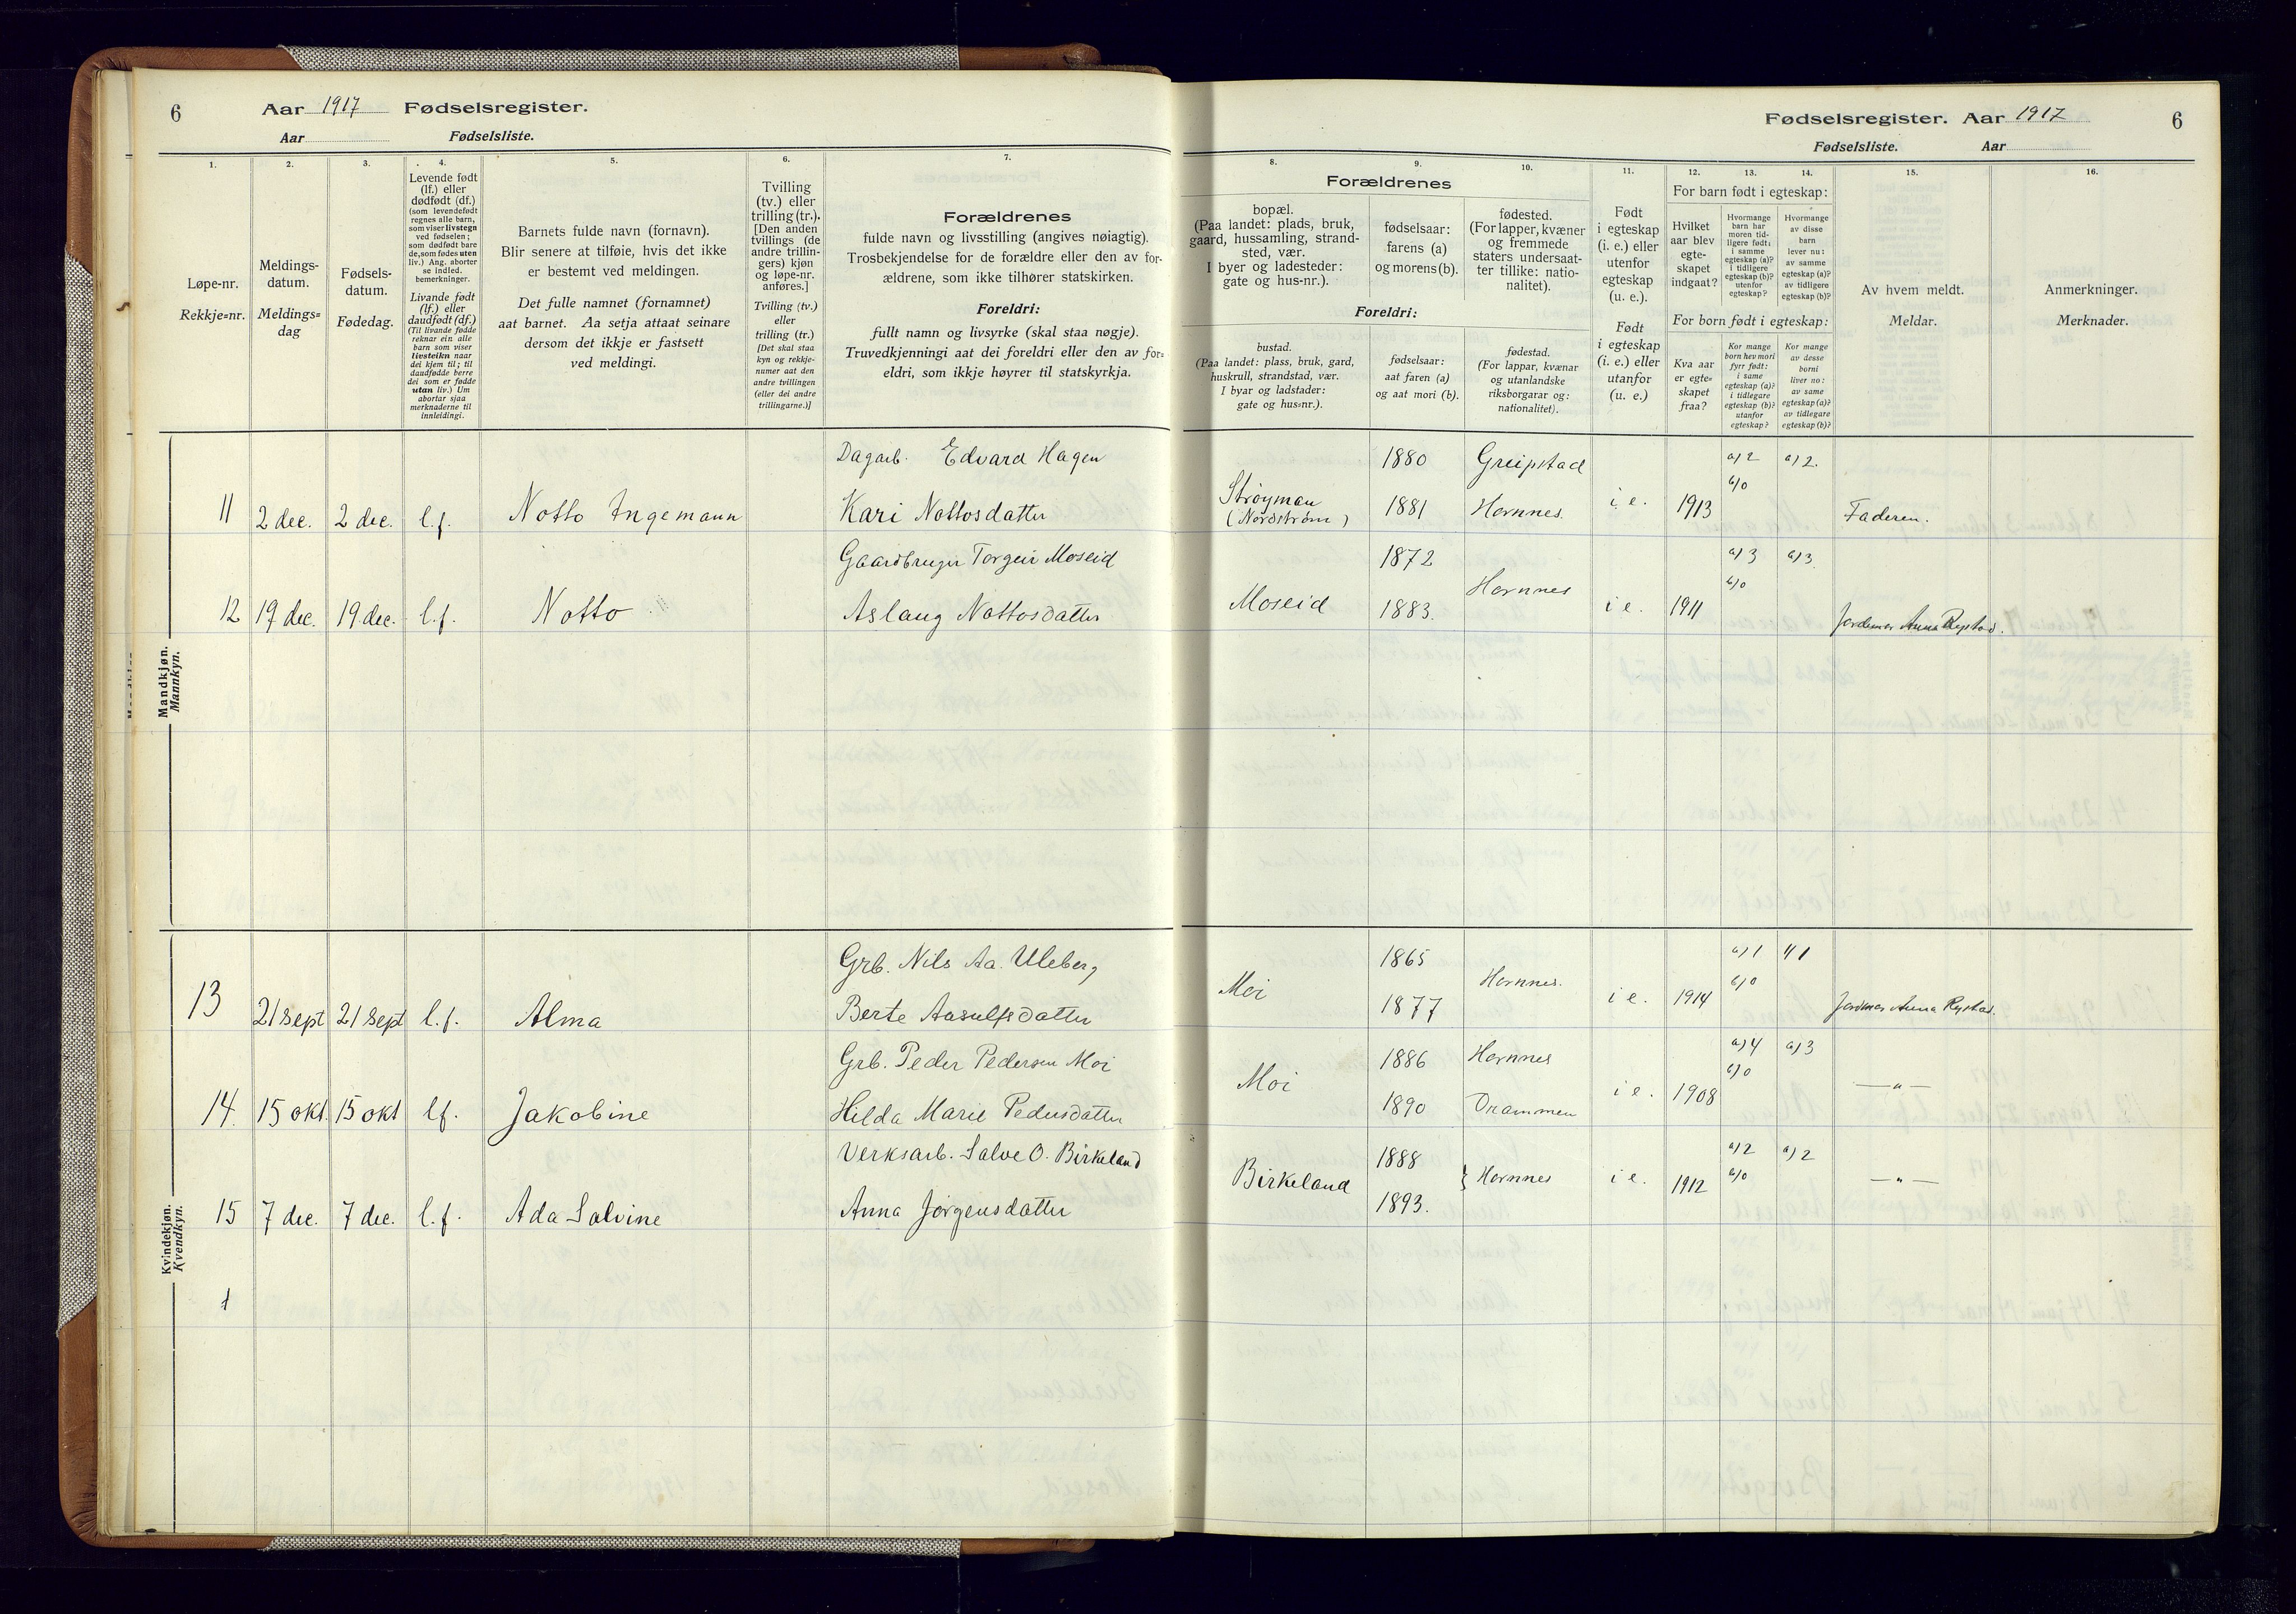 6 Aar 1917 Fødselsregister.
Aar Fødselsliste.
1. 2. 3. 4. 5. 6. 7.
Løpe-nr.
Rekkje=nr.
Meldings-
datum.
Meldings=
dag
Fødsels-
datum.
Fødedag.
Levende født
(lf.) eller
dødfødt (df.)
(som levendefødt
regnes alle barn,
som viser livstegn
ved fødselen;
som dødfødt bare
de, som fødes uten
liv.) Ang. aborter
se indled.
bemerkninger.
Livande født
(lf.) eller
daudfødt (df.)
(Til livande fødde
reknar ein alle
barn som viser
livsteikn naar
dei kjem til; til
daudfødde berre
dei som er fødde
utan liv.) Um
abortar sjaa
merknaderne til
innleidingi.
Barnets fulde navn (fornavn).
Blir senere at tilføie, hvis det ikke
er bestemt ved meldingen.
Det fulle namnet (fornamnet)
aat barnet. Aa setja attaat seinare
dersom det ikkje er fastsett
ved meldingi.
Tvilling
(tv.) eller
trilling (tr.).
[Den anden
tvillings (de
andre trillin-
gers) kjøn
og løpe-nr.
anføres.]
Tvilling (tv.)
eller
trilling (tr.)
[Det skal staa
kyn og rekkje-
numer aat den
andre tvillingen
(eller dei andre
trillingarne.)]
Forældrenes
fulde navn og livsstilling (angives nøiagtig).
Trosbekjendelse for de forældre eller den av for-
ældrene, som ikke tilhører statskirken.
Foreldri:
fullt namn og livsyrke (skal staa nøgje).
Truvedkjenningi aat dei foreldri eller den av for=
eldri, som ikkje høyrer til statskyrkja.
Mandkjøn.
Mannkyn.
Dagarb. Edvard Hagen
11 2 dec. 2 dec. l.f. Notto Ingemann Kari Nottosdatter
Gaardbruger Torgeir Moseid
12 19 dec. 19 dec. l.f. Notto Aslaug Nottosdatter
Kvindekjøn.
Kvendkyn.
Grb. Nils Aa. Uleberg
13 21 sept 21 sept l.f. Alma Berte Aasulfsdatter
Grb. Peder Pedersen Moi
14. 15 okt. 15 okt lf. Jakobine Hilda Marie Pedersdatter
Verksarb. Salve O. Birkeland
15 7 dec. 7 dec. l.f. Ada Salvine Anna Jørgensdatter
Fødselsregister. Aar 1917 6
Fødselsliste. Aar
8. 9. 10. 11. 12. 13. 14. 15. 16.
Forældrenes
bopæl.
(Paa landet: plads, bruk,
gaard, hussamling, strand-
sted, vær.
I byer og ladesteder:
gate og hus-nr.).
fødselsaar:
farens (a)
og morens (b).
fødested.
(For lapper, kvæner
og fremmede
staters undersaat-
ter tillike: natio-
nalitet).
Foreldri:
bustad.
(Paa landet: plass, bruk, gard,
huskrull, strandstad, vær.
I byar og ladstader:
gate og hus=nr.).
fødselsaar:
aat faren (a)
og aat mori (b).
fødestad.
(For lappar, kvænar
og utanlandske
riksborgarar og:
nationalitet).
Født
i egteskap
(i. e.) eller
utenfor
egteskap
(u. e.).
Født
i egteskap
(i. e.) eller
utanfor
(u. e.)
For barn født i egteskap:
Hvilket
aar blev
egte-
skapet
indgaat?
Hvormange
barn har
moren tid-
ligere født:
i samme
egteskap (a)?
i tidligere
egteskap (b)?
utenfor
egteskap?
Hvormange
av disse
barn
lever nu:
av samme
egteskap (a)?
av tidligere
egteskap (b)?
For born født i egteskap:
Kva aar
er egte=
skapet
fraa?
Kor mange
born hev mori
fyrr født:
i same
egteskap (a)?
i tidlegare
egteskap (b)?
utanfor
egteskap?
Kor mange
av desse
borni
liver no:
av same
egteskap (a)?
av tidlegare
egteskap (b)?
Av hvem meldt.
Meldar.
Anmerkninger.
Merknader.
1880 Greipstad a) 2 a) 2.
Strøyman (Nordstrøm) 1881 Hornnes. i. e. 1913 b) 0 Faderen.
1872 a) 3 a) 3
Moseid 1883. Hornnes i e. 1911 b) 0 Jordemor Anna Rystad.
1865 a) 1
Moi 1877 Hornnes. i e. 1914 b) 0 Jordmor Anna Rystad.
1886 Hornnes a) 4 a) 3
Moi 1890 Drammen i e. 1908 b) 0 — " —
1888 a) 2 a) 2
Birkeland 1893. } Hornnes i e. 1912 b) 0 — " —